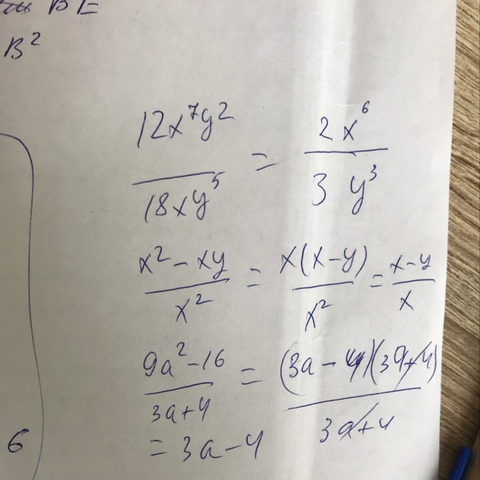 BE
B²
12x⁷y² / 18xy⁵ = 2x⁶ / 3y³
x² - xy / x² = x(x-y) / x² = x-y / x
9a² - 16 / 3a+4 = (3a-4)(3a+4) / 3a+4
= 3a-4
6